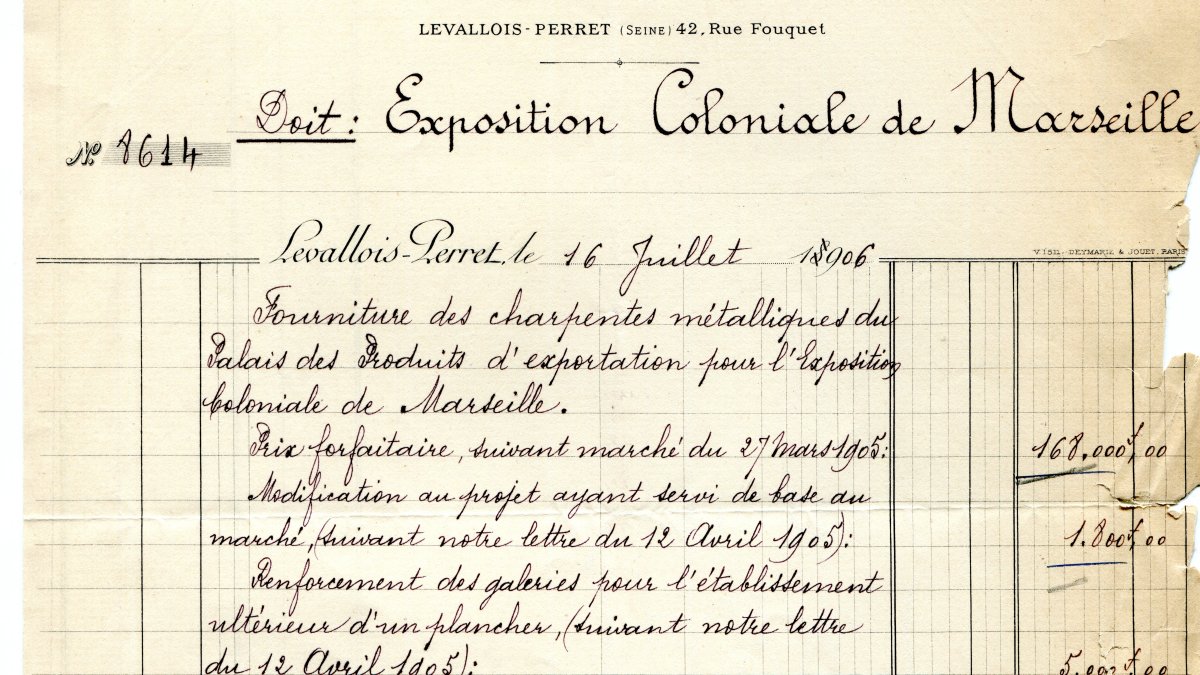 LEVALLOIS-PERRET (SEINE) 42, Rue Fouquet
Doit: Exposition Coloniale de Marseille
No 8614
Levallois-Perret, le 16 Juillet 1906
VISEL-DEYMARIE & JOUET, PARIS
Fourniture des charpentes métalliques du
Palais des Produits d'exportation pour l'Exposition
Coloniale de Marseille.
Prix forfaitaire, suivant marché du 27 Mars 1905: 168.000f,00
Modification au projet ayant servi de base au
marché, (suivant notre lettre du 12 Avril 1905): 1.800f,00
Renforcement des galeries pour l'établissement
ultérieur d'un plancher, (suivant notre lettre
du 12 Avril 1905):